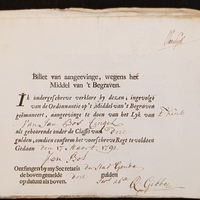 Billet van aangeevinge, wegens het
Middel van 't Begraven.
IK ondergeschreve verklare by dezen, ingevolge
van de Ordonnantie op 't Middel van 't Begraven
geëmaneert, aangevinge te doen van het Lyk van 't Kind
van Jan Bos
als gehoorende onder de Classis van drie
gulden, omme conform het voorschreve Regt te voldoen
Gedaan den 17 Maart 1791
Jan Bos
Ontfangen by my Secretaris der Stad
de boven gemelde drie gulden
op datum als boven.